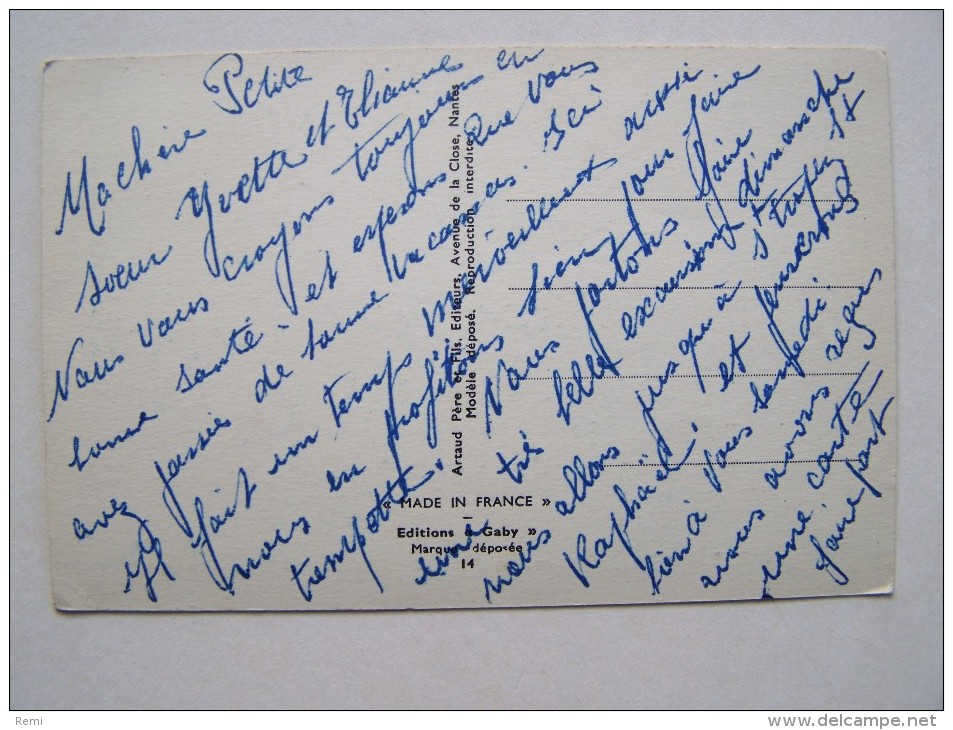 Ma chère Petite
soeur Yvette et Elianne
Nous vous croyons toujours en
bonne santé et espérons que vous
avez passés de bonne vacances. Ici
Il fait un temps merveilleux aussi
nous en profitons bien pour faire
trempette. Nous partons faire
une très belle excursion dimanche
nous allons jusqu'à St Tropez St
Raphaël et
bien à vous samedi.
nous avons reçues
une carte
faire part
Artaud Père et Fils, Editeurs, Avenue de la Close, Nantes
Modèle déposé. Reproduction interdite
« MADE IN FRANCE »
Editions « Gaby »
Marque déposée
14
Remi
www.delcampe.net